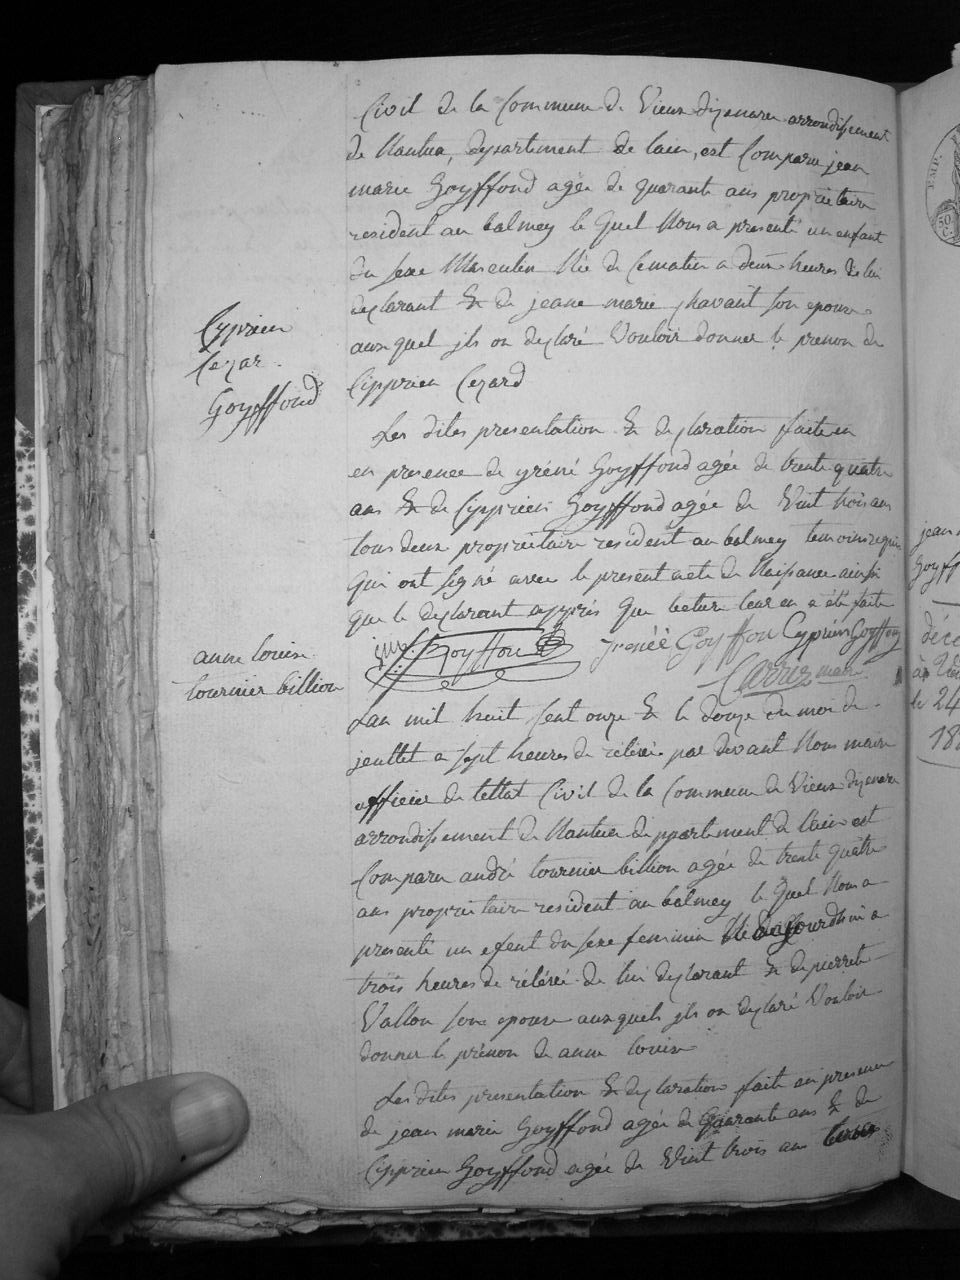 Civil de la Commune de Vieux dizenave arrondissement
de Nantua, departement de lain, est Comparu jean
marie Goyffond agée de quarante ans propriétaire
resident au balmey le quel Nous a presenté un enfant
du sexe Masculin Née de Cematin a deux heures de lui
declarant & de jeane marie Chavant son epouse
aux quel jls on declaré Vouloir donner le prenon de
Cipprien Cezard
Cyprien
Cezar
Goyffond
Les dites presentation & declaration faite en
en presence de yréné Goyffond agée de trente quatre
ans & de Cypprien Goyffond agée de Vint trois ans
tous deux propriétaire resident au balmey temoins requis
Qui ont signé avec le present acte de Naissance ainsi
que le declarant apprés que lecture leur en a été faite
jm Goyffon Irenéé Goyffon Cyprien Goyffon
Carrier maire
anne louise
tournier billion
Lan mil huit sent onze & le douze du moi de
jeullet a sept heures de rélévé par devant Nous maire
officier de lettat Civil de la Commune de Vieux dizenave
arrondissement de Nantua déppartement de lain est
Comparu andré tournier billion agée de trente quatre
ans propriétaire resident au balmey le quel Nous a
presenté un efent du sexe feminin Née daujourdhui a
trois heures de rélévée de lui declarant & de pierrete
Vallon sone epouse aux quels jls on declaré Vouloir
donner le prénon de anne louise
Les dites presentation & declaration faite en presence
de jean marie Goyffond agée de quarante ans & de
Cipprien Goyffond agée de Vint trois ans
jean
Goyff
déce
à
le 24
18
EMP.
50
C.